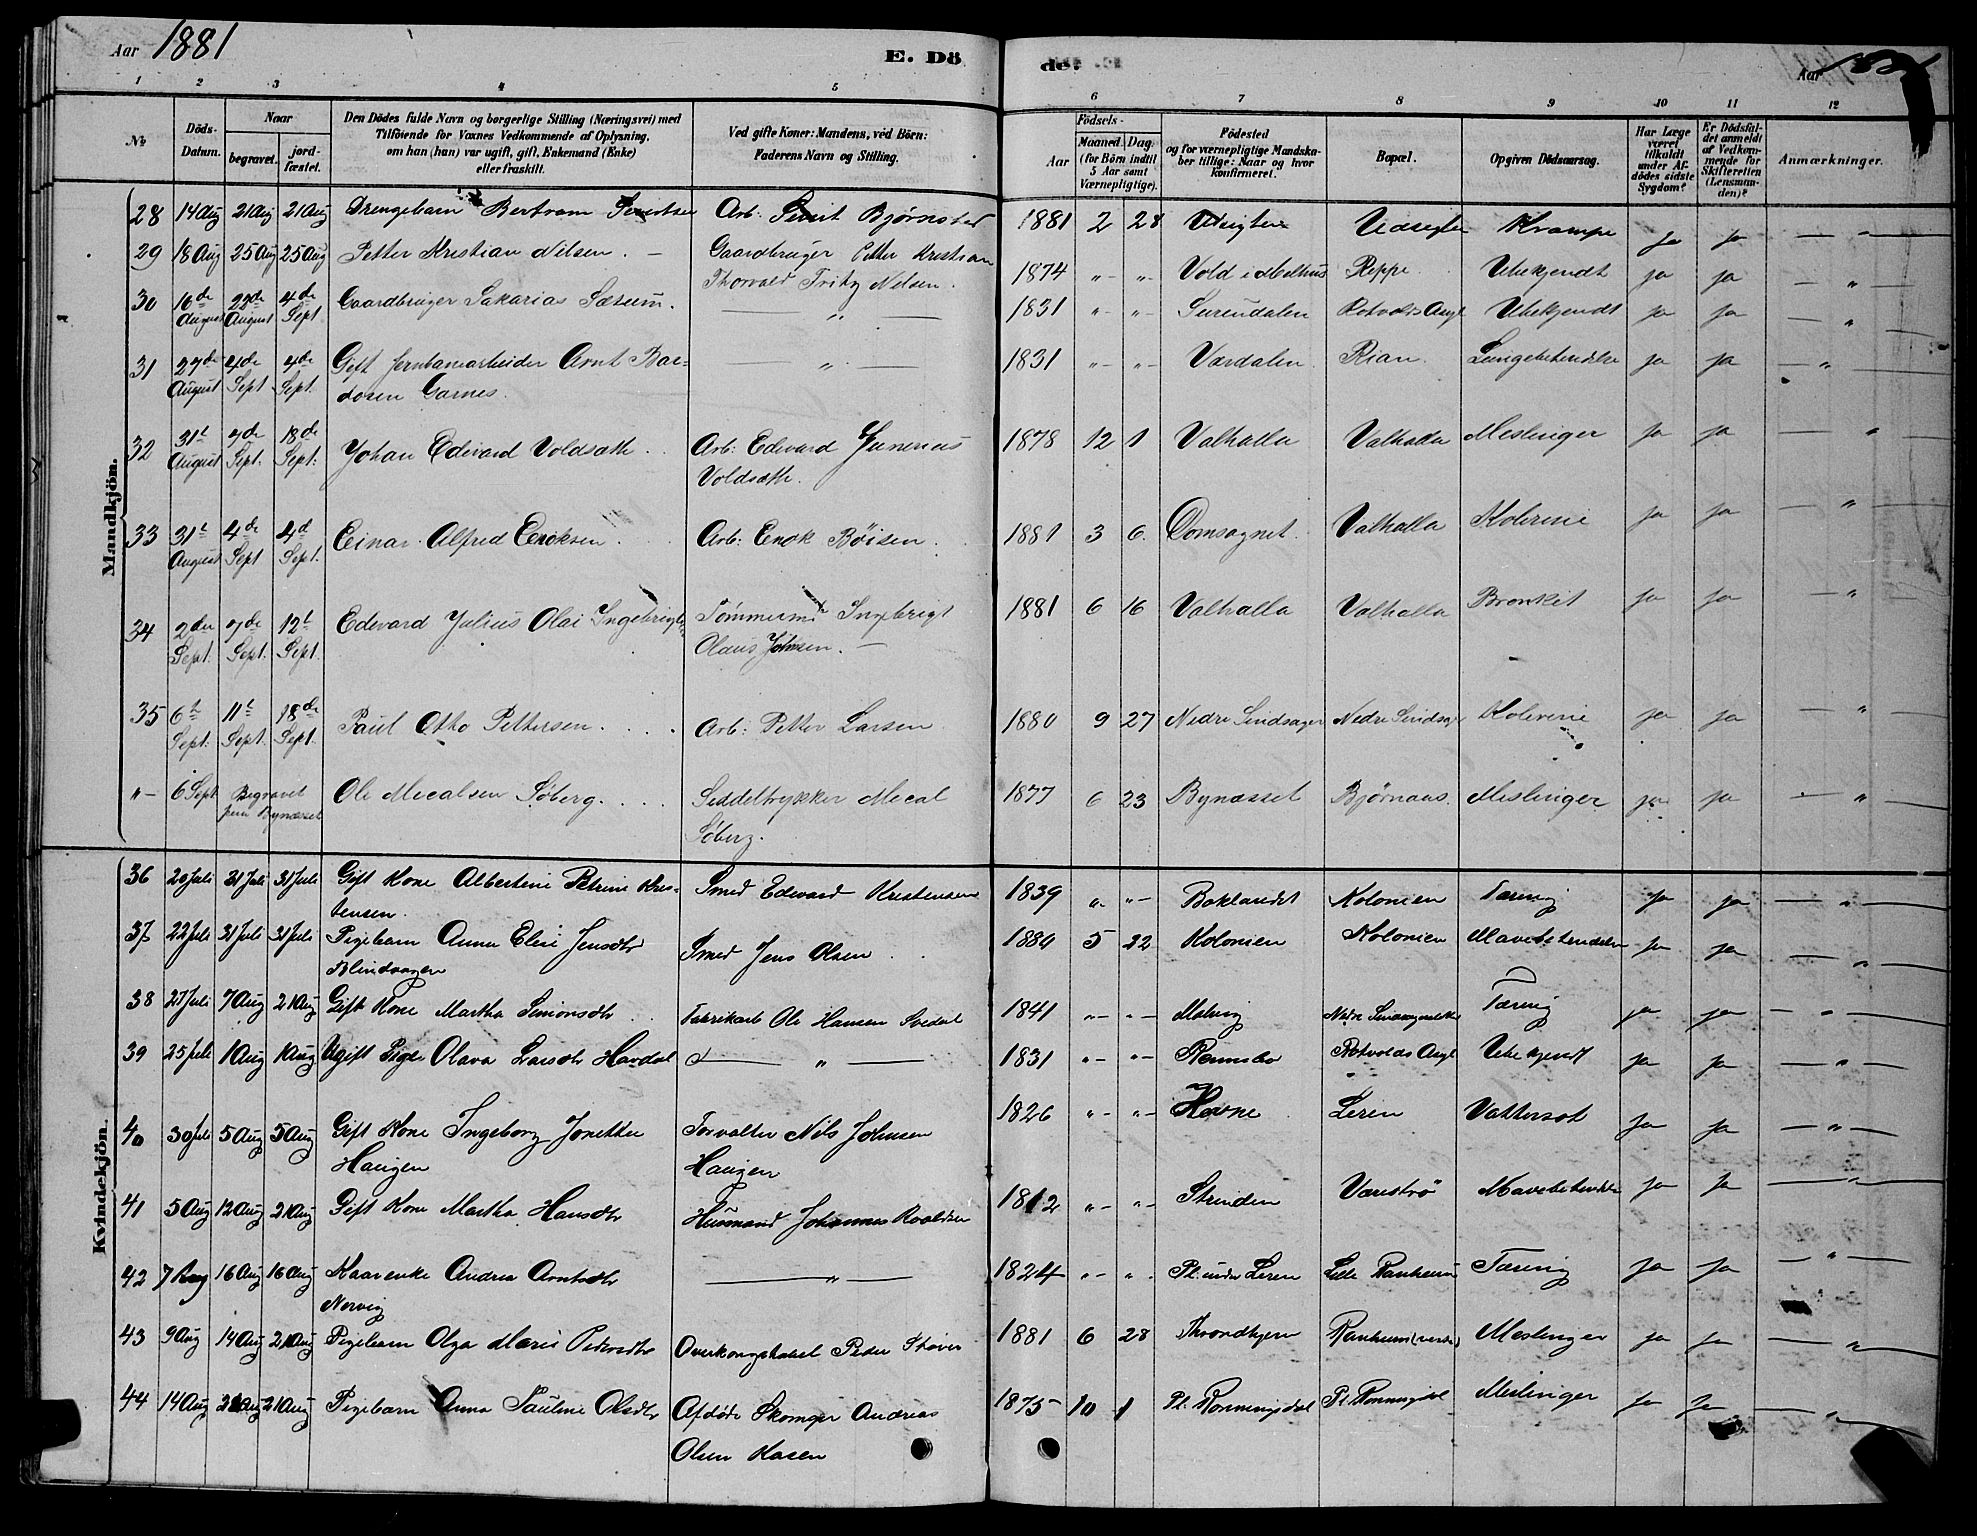 Aar 1881 E. Dö de. Aar
1 2 3 4 5 6 7 8 9 10 11 12
No. Döds-Datum. Naar begravet. jord-fæstet. Den Dödes fulde Navn og borgerlige Stilling (Næringsvei) med Tilföiende for Voxnes Vedkommende af Oplysning, om han (hun) var ugift, gift, Enkemand (Enke) eller fraskilt. Ved gifte Koner: Mandens, ved Börn: Faderens Navn og Stilling. Födsels- Aar Maaned. Dag. (for Börn indtil 5 Aar samt Værnepligtige). Födested og for værnepligtige Mandska-ber tillige: Naar og hvor konfirmeret. Bopæl. Opgiven Dödsaarsag. Har Læge været tilkaldt under Af-dödes sidste Sygdom? Er Dödsfal-det anmeldt af Vedkom-mende for Skifteretten (Lensman-den)? Anmærkninger.
Mandkjön.
28 14 Aug 21 Aug 21 Aug Drengebarn Bertram Sivertsen Arb. Sivert Bjørnstad 1881 2 28 Udsigten Udsigten Krampe ja ja — „ —
29 18 Aug 25 Aug 25 Aug Petter Kristian Nilsen. — Gaardbruger Petter Kristian 1874 „ - „ - Vold i Melhus Reppe Ubekjendt ja ja — „ —
Thorvald Fritz Nelsen.
30 16de August 22de August 4de Sept Gaardbruger Sakarias Sæsum. — „ — 1831 „ - „ - Surendalen Rotvolds Asyl Ubekjendt ja ja — „ —
31 27de August 4de Sept 4de Sept. Gift Jernbanearbeider Arnt Bar- — „ — 1831 „ - „ - Værdalen Rian Lungebetændelse ja ja — „ —
dosen Garnes.
32 31t August 7de Sept. 18de Sept. Johan Edevard Voldsæth Arb. Edevard Junerius 1878 12 1 Valhalla Valhalla Meslinger ja ja „
Voldsæth.
33 31t August 4de Sept 4d Sept. Einar Alfred Enoksen. Arb. Enok Böisen 1881 3 6. Domsognet Valhalla Kolerine ja ja — „ —
34 2den Sept. 7de Sept. 12t Sept. Edevard Julius Olai Ingebrigts Tömmerm. Ingebrigt 1881 6 16 Valhalla Valhalla Bronkit ja ja — „ —
Olaus Johnsen. —
35 6t Sept. 11t Sept. 18de Sept. Paul Otto Pettersen. Arb. Petter Larsen 1880 9 27 Nedre Sindsager Nedre Sindsag Kolerine ja ja — „ —
„ - 6 Sept Begravet fra Bynæsset Ole Mecalsen Söberg. Seddeltrykker Mecal 1877 6 23 Bynæsset Bjørnaas. Meslinger ja ja — „ —
Söberg.
Kvindekjön.
36 20 Juli 31 Juli 31 Juli Gift Kone Albertine Petrine Kris- Smed Edevard Kristensen 1839 „ - „ - Baklandet Kolonien Tæring ja ja — „ —
tensen.
37 22 Juli 31 Juli 31 Juli Pigebarn Anna Elise Jensdtr Smed Jens Olsen 1880 5 22 Kolonien Kolonien Mavebetændelse ja ja — „ —
38 27 Juli 7 Aug 21 Aug Gift Kone Martha Simonsdtr Fabrikarb Ole Hansen 1841 „ - „ - Malvig Tæring ja ja — „ —
39 25 Juli 1 Aug 1 Aug Ugift Pige Olava Larsdtr Havdal — „ — 1831 „ - „ - Rotvolds Asyl Ubekjendt ja ja — „ —
40 30 Juli 5 Aug 5 Aug Gift Kone Ingeborg Jonette Forvalter Nils Johnsen 1826 „ - „ - Horne Leren Vattersot ja ja — „ —
Haugen Haugen
41 5 Aug 12 Aug 21 Aug Gift Kone Martha Hansdtr Husmand Johannes 1812 „ - „ - Strinden Mavebetændelse ja ja — „ —
42 7 Aug 16 Aug 16 Aug Kaarenke Andrea Arntsdtr — „ — 1824 „ - „ - Pl. under Leren Lille Ranheim Tæring ja ja — „ —
Nervig
43 9 Aug 14 Aug 21 Aug Pigebarn Olga Marie Pedersdtr Peder Støver 1881 6 28 Throndhjem Ranheim Meslinger ja ja — „ —
44 14 Aug 21 Aug 21 Aug Pigebarn Anna Pauline Olsdtr Afdøde Skomger Andreas 1875 10 1 Pl. Ronningsdal Pl. Ronningsdal Meslinger ja ja — „ —
Olsen Hasen